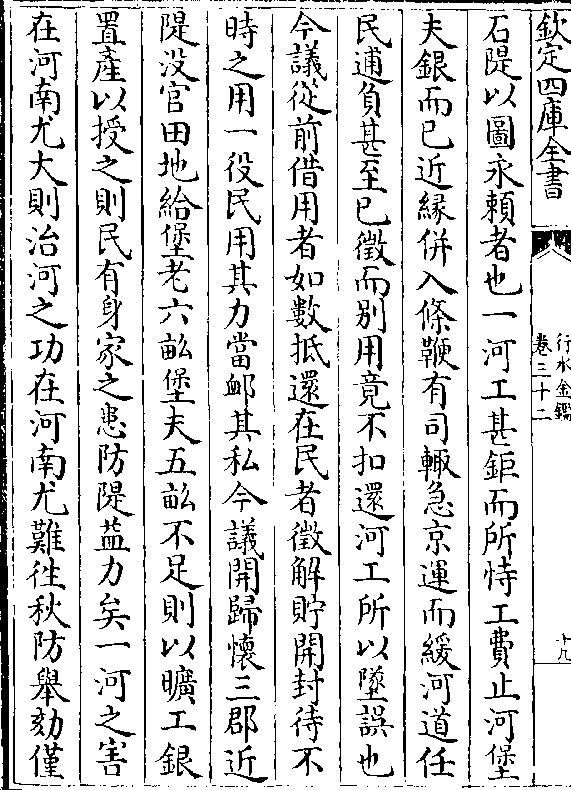 欽定四庫全書
行水金鑑
卷三十二
十九
石隄以圖永賴者也一河工甚鉅而所恃工費止河堡
夫銀而已近緣併入條鞭有司輙急京運而緩河道任
民逋負甚至已徵而別用竟不扣還河工所以墮誤也
今議從前借用者如數抵還在民者徵解貯開封待不
時之用一役民用其力當衈其私今議開歸懷三郡近
隄没官田地給堡老六畝堡夫五畝不足則以曠工銀
置產以授之則民有身家之患防隄益力矣一河之害
在河南尤大則治河之功在河南尤難徃秋防舉劾僅